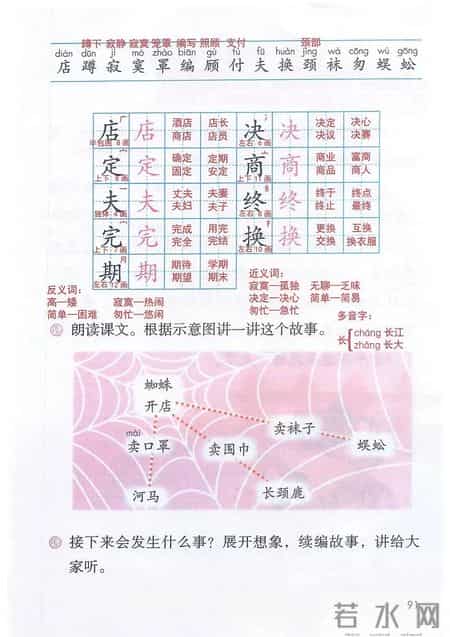 蹲下 寂静 寂寞 笼罩 编写 照顾 支付 颈部
diàn dūn jì mò zhào biān gù fù fū huàn jǐng wà cōng wú gōng
店 蹲 寂 寞 罩 编 顾 付 夫 换 颈 袜 匆 蜈 蚣
店 店 酒店 店长 决 决 决定 决心
商店 店员 决议 决赛
半包围 8画 左右 6画
定 定 确定 定期 商 商 商业 富商
固定 安定 商品 商人
上下 8画 上下 11画
夫 夫 丈夫 夫妻 终 终 终于 终点
夫妇 夫子 终止 最终
独体 4画 左右 8画
完 完 完成 用完 换 换 更换 互换
完全 完结 交换 换衣服
上下 7画 左右 10画
期 期 期待 学期
期望 期末
左右 12画
反义词:
高—矮 寂寞—热闹
简单—困难 匆忙—悠闲
近义词:
寂寞—孤独 无聊—乏味
决定—决心 简单—简易
匆忙—急忙
多音字:
长 cháng 长江
zhǎng 长大
朗读课文。根据示意图讲一讲这个故事。
蜘蛛
开店
mài
卖口罩
卖围巾
卖袜子
蜈蚣
河马
长颈鹿
接下来会发生什么事？展开想象，续编故事，讲给大
家听。
91
若水网